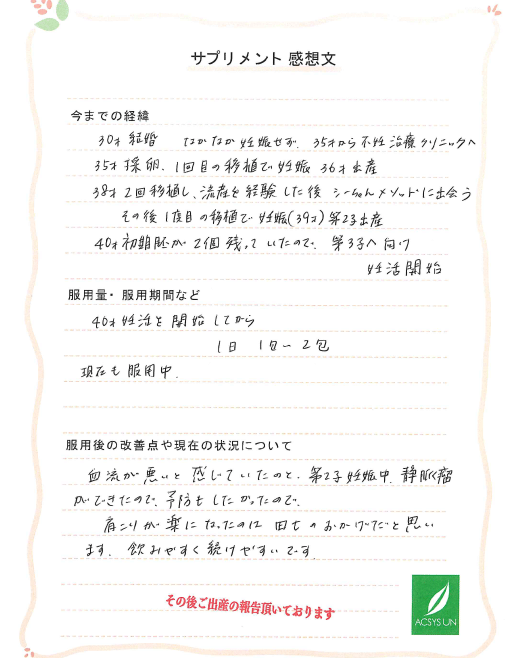 サプリメント 感想文
今までの経緯
30才 結婚 なかなか妊娠せず、35才から不妊治療クリニックへ
35才 採卵、1回目の移植で妊娠 36才出産
38才 2回移植し、流産を経験した後 シーちゃんメソッドに出会う
その後1度目の移植で妊娠(39才)第2子出産
40才 初期胚が2個残っていたので、第3子へ向け
妊活開始
服用量・服用期間など
40才妊活を開始してから
1日 1包〜2包
現在も服用中.
服用後の改善点や現在の状況について
血流が悪いと感じていたのと、第2子妊娠中、静脈瘤
ができたので、予防もしたかったので、
肩こりが楽になったのは 田七のおかげだと思い
ます. 飲みやすく続けやすいです.
その後ご出産の報告頂いております
ACSYS UN